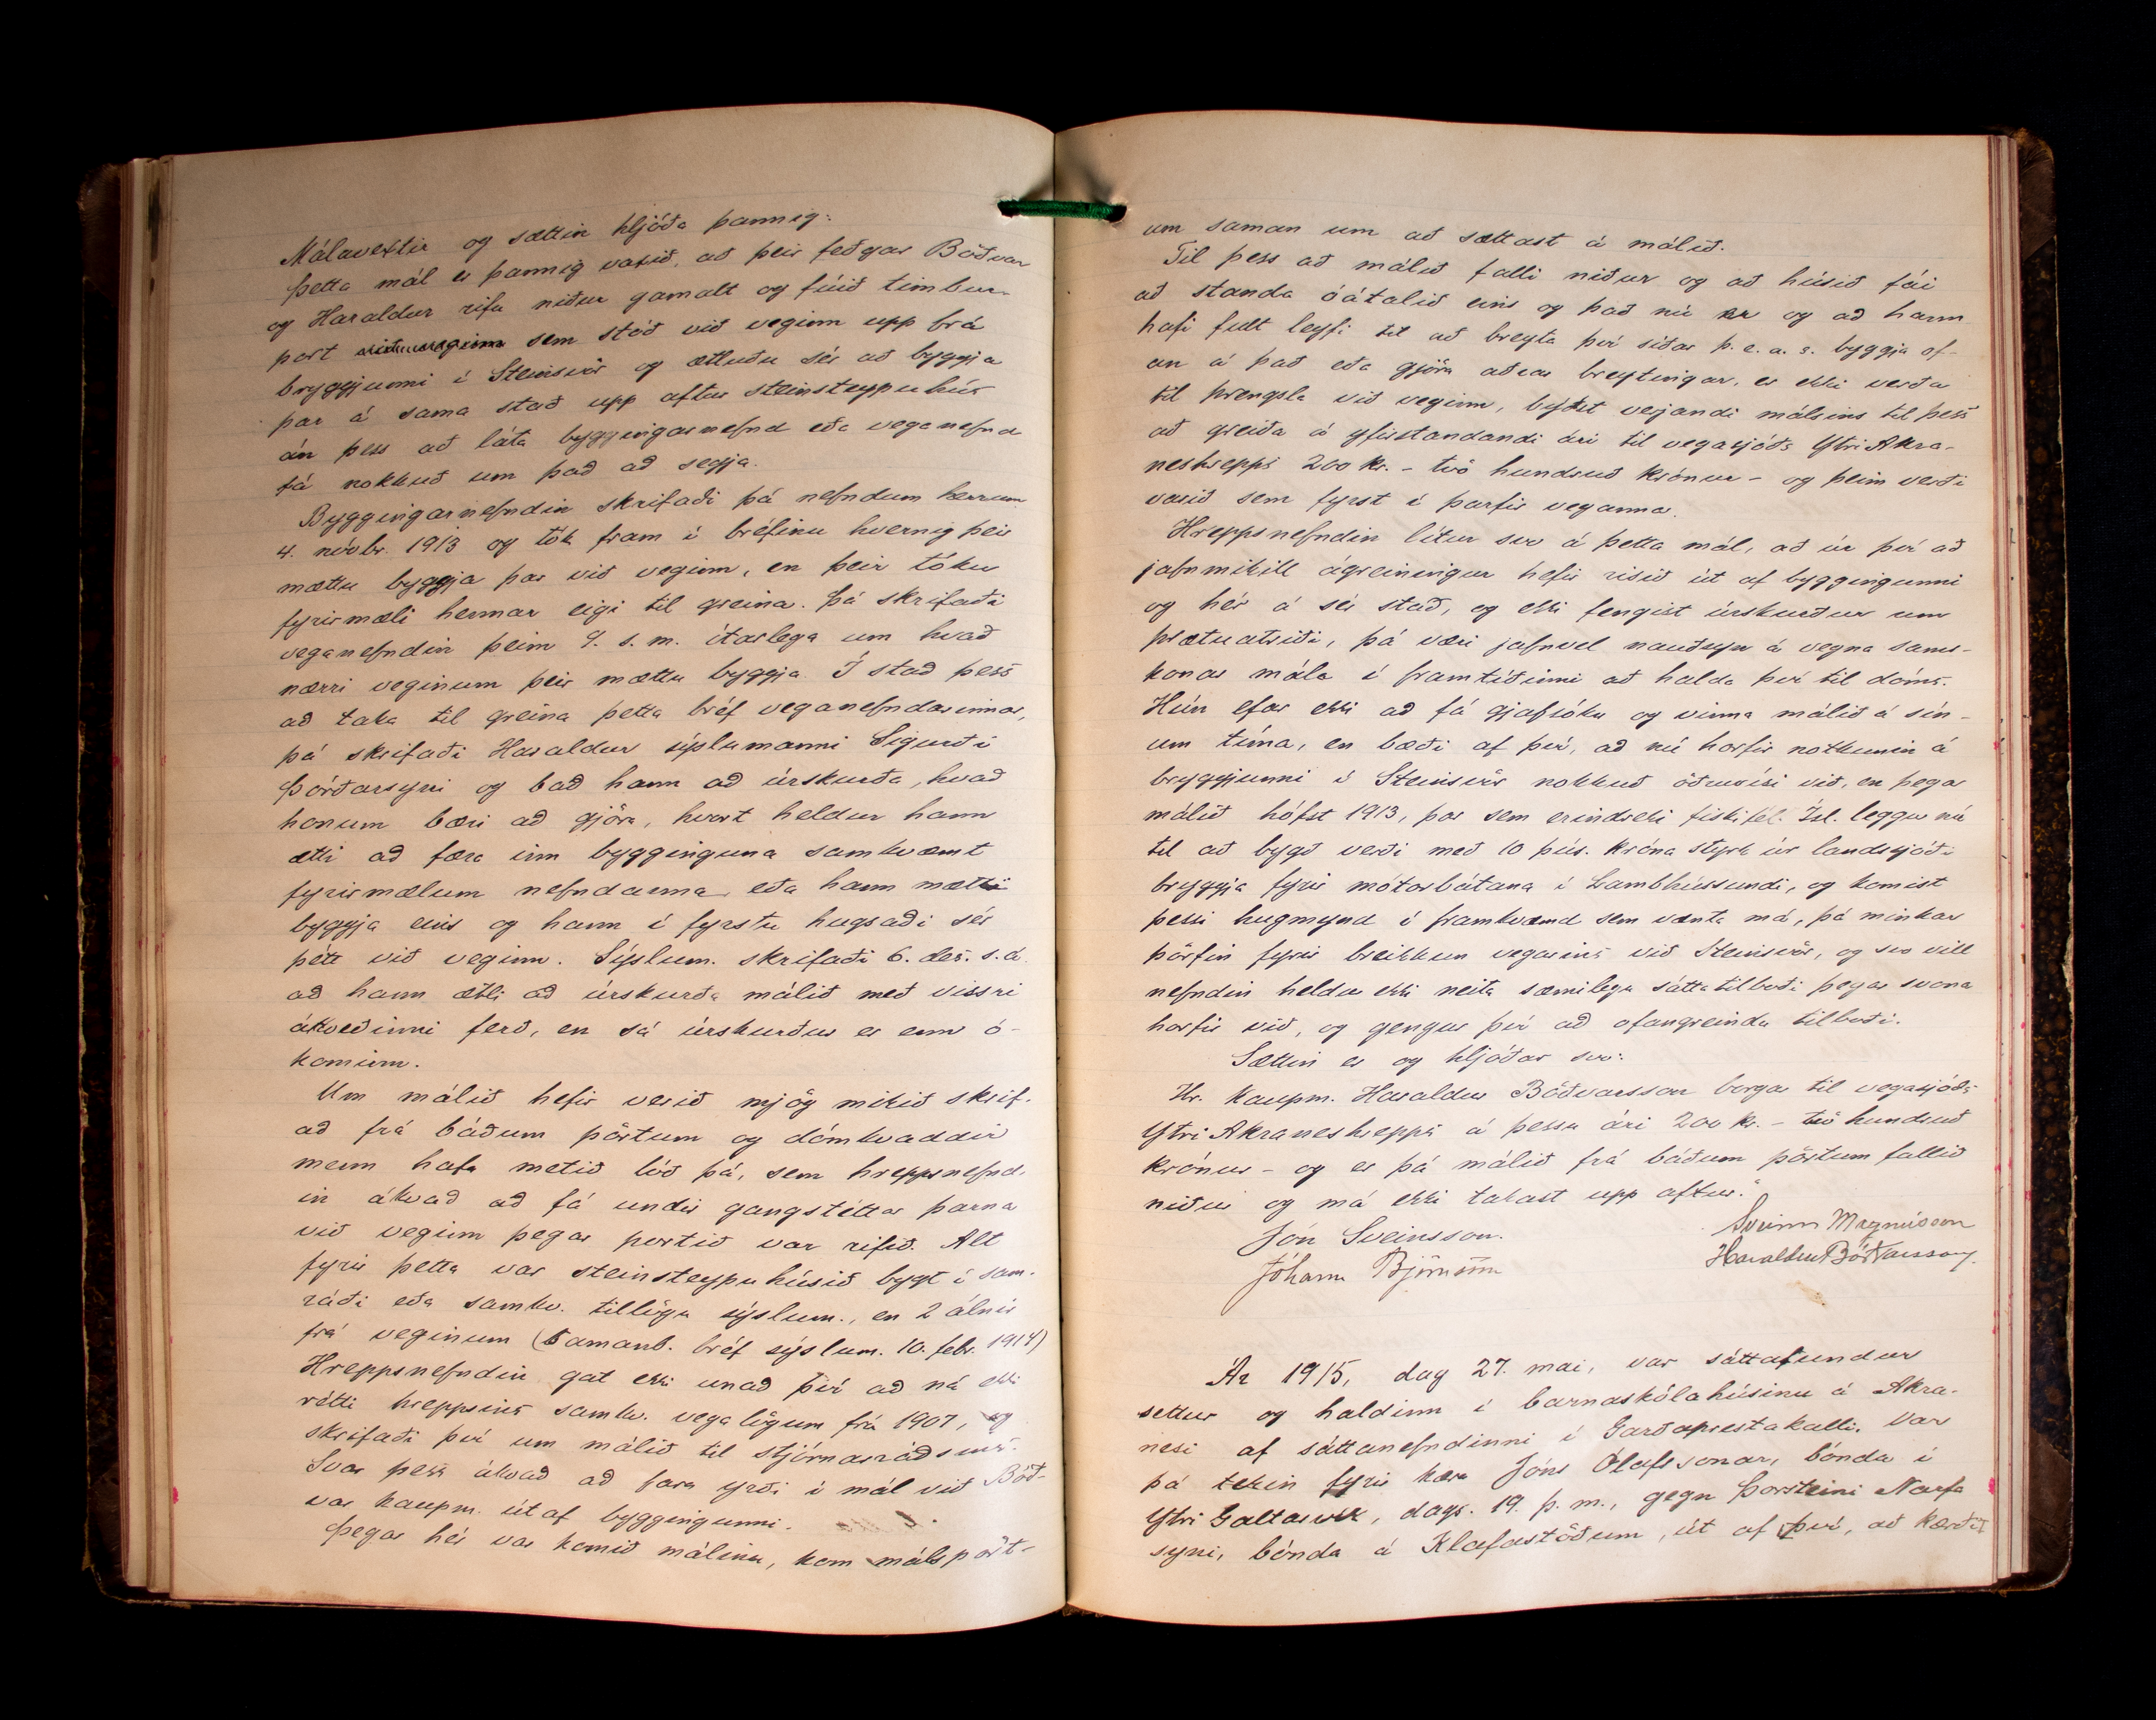 Málavextir og sættin hljóða þannig:
Þetta mál er þannig vaxið, að þeir feðgar Böðvar
og Haraldur rifu niður gamalt og fúið timbur-
port sem stóð við veginn upp frá
bryggjunni í Steinsvör og ætluðu sér að byggja
þar á sama stað upp aftur steinsteypuhús
án þess að láta byggingarnefnd eða veganefnd
fá nokkuð um það að segja.
Byggingarnefndin skrifaði þá nefndum herrum
4. nóvbr. 1913 og tók fram í bréfinu hvernig þeir
mættu byggja þar við veginn, en þeir tóku
fyrirmæli hennar eigi til greina. Þá skrifaði
veganefndin þeim 9. s. m. ítarlega um hvað
nærri veginum þeir mættu byggja. Í stað þess
að taka til greina þetta bréf veganefndarinnar,
þá skrifaði Haraldur sýslumanni Sigurði
Þórðarsyni og bað hann að úrskurða, hvað
honum bæri að gjöra, hvort heldur hann
ætti að færa inn bygginguna samkvæmt
fyrirmælum nefndanna, eða hann mætti
byggja eins og hann í fyrstu hugsaði sér
þétt við veginn. Sýslum. skrifaði 6. des. s.á.
að hann ætli að úrskurða málið með vissri
ákveðinni ferð, en sá úrskurður er enn ó-
kominn.
Um málið hefir verið mjög mikið skrif-
að frá báðum pörtum og dómkvaddir
menn hafa metið lóð þá, sem hreppsnefnd-
in ákvað að fá undir gangstéttar þarna
við veginn þegar portið var rifið. Alt
fyrir þetta var steinsteypuhúsið bygt í sam-
ráði eða samkv. tillögu sýslum., en 2 álnir
frá veginum (Samanb. bréf sýslum. 10. febr. 1914)
Hreppsnefndin gat ekki unað því að ná ekki
rétti hreppsins samkv. vegalögum frá 1907, og
skrifaði því um málið til stjórnarráðsins.
Svar þess ákvað að fara yrði í mál við Böð-
var kaupm. út af byggingunni.
Þegar hér var komið málinu, kom málspört-
um saman um að sættast á málið.
Til þess að málið falli niður og að húsið fái
að standa óátalið eins og það nú er og að hann
hafi fult leyfi til að breyta því síðar þ. e. a. s. byggja of-
an á það eða gjöra aðrar breytingar, er ekki verða
til þrengsla við veginn, býðst verjandi málsins til þess
að greiða á yfirstandandi ári til vegasjóðs Ytri Akra-
neshrepps 200 kr. - tvö hundruð krónur - og þeim verði
varið sem fyrst í þarfir veganna.
Hreppsnefndin lítur svo á þetta mál, að úr því að
jafnmikill ágreiningur hefir risið út af byggingunni
og hér á sér stað, og ekki fengist úrskurður um
þrætuatriði, þá væri jafnvel nauðsyn á vegna sams-
konar mála í framtíðinni að halda því til dóms.
Hún efar ekki að fá gjafsókn og vinna málið á sín-
um tíma, en bæði af því, að nú horfir notkunin á
bryggjunni í Steinsvör nokkuð öðruvísi við, en þegar
málið hófst 1913, þar sem erindreki fiskifél. Ísl. leggur nú
til að bygð verði með 10 þús. króna styrk úr landssjóði
bryggja fyrir mótorbátana í Lambhússundi, og komist
þessi hugmynd í framkvæmd sem vænta má, þá minkar
þörfin fyrir breikkun vegarins við Steinsvör, og svo vill
nefndin heldur ekki neita sæmilegu sáttatilboði þegar svona
horfir við, og gengur því að ofangreindu tilboði.
Sættin er og hljóðar svo:
Hr. kaupm. Haraldur Böðvarsson borgar til vegasjóðs
Ytri Akraneshrepps á þessu ári 200 kr. - tvö hundruð
krónur - og er þá málið frá báðum pörtum fallið
niður og má ekki takast upp aftur."
Jón Sveinsson. Sveinn Magnússon
Jóhann Björnsson Haraldur Böðvarsson.
Ár 1915, dag 27. mai, var sáttafundur
settur og haldinn í barnaskólahúsinu á Akra-
nesi af sáttanefndinni í Garðaprestakalli. Var
þá tekin fyrir kæra Jóns Ólafssonar, bónda í
Ytri Galtarvík, dags. 19. þ. m., gegn Þorsteini Narfa
syni, bónda á Klafastöðum, út af því, að kærði